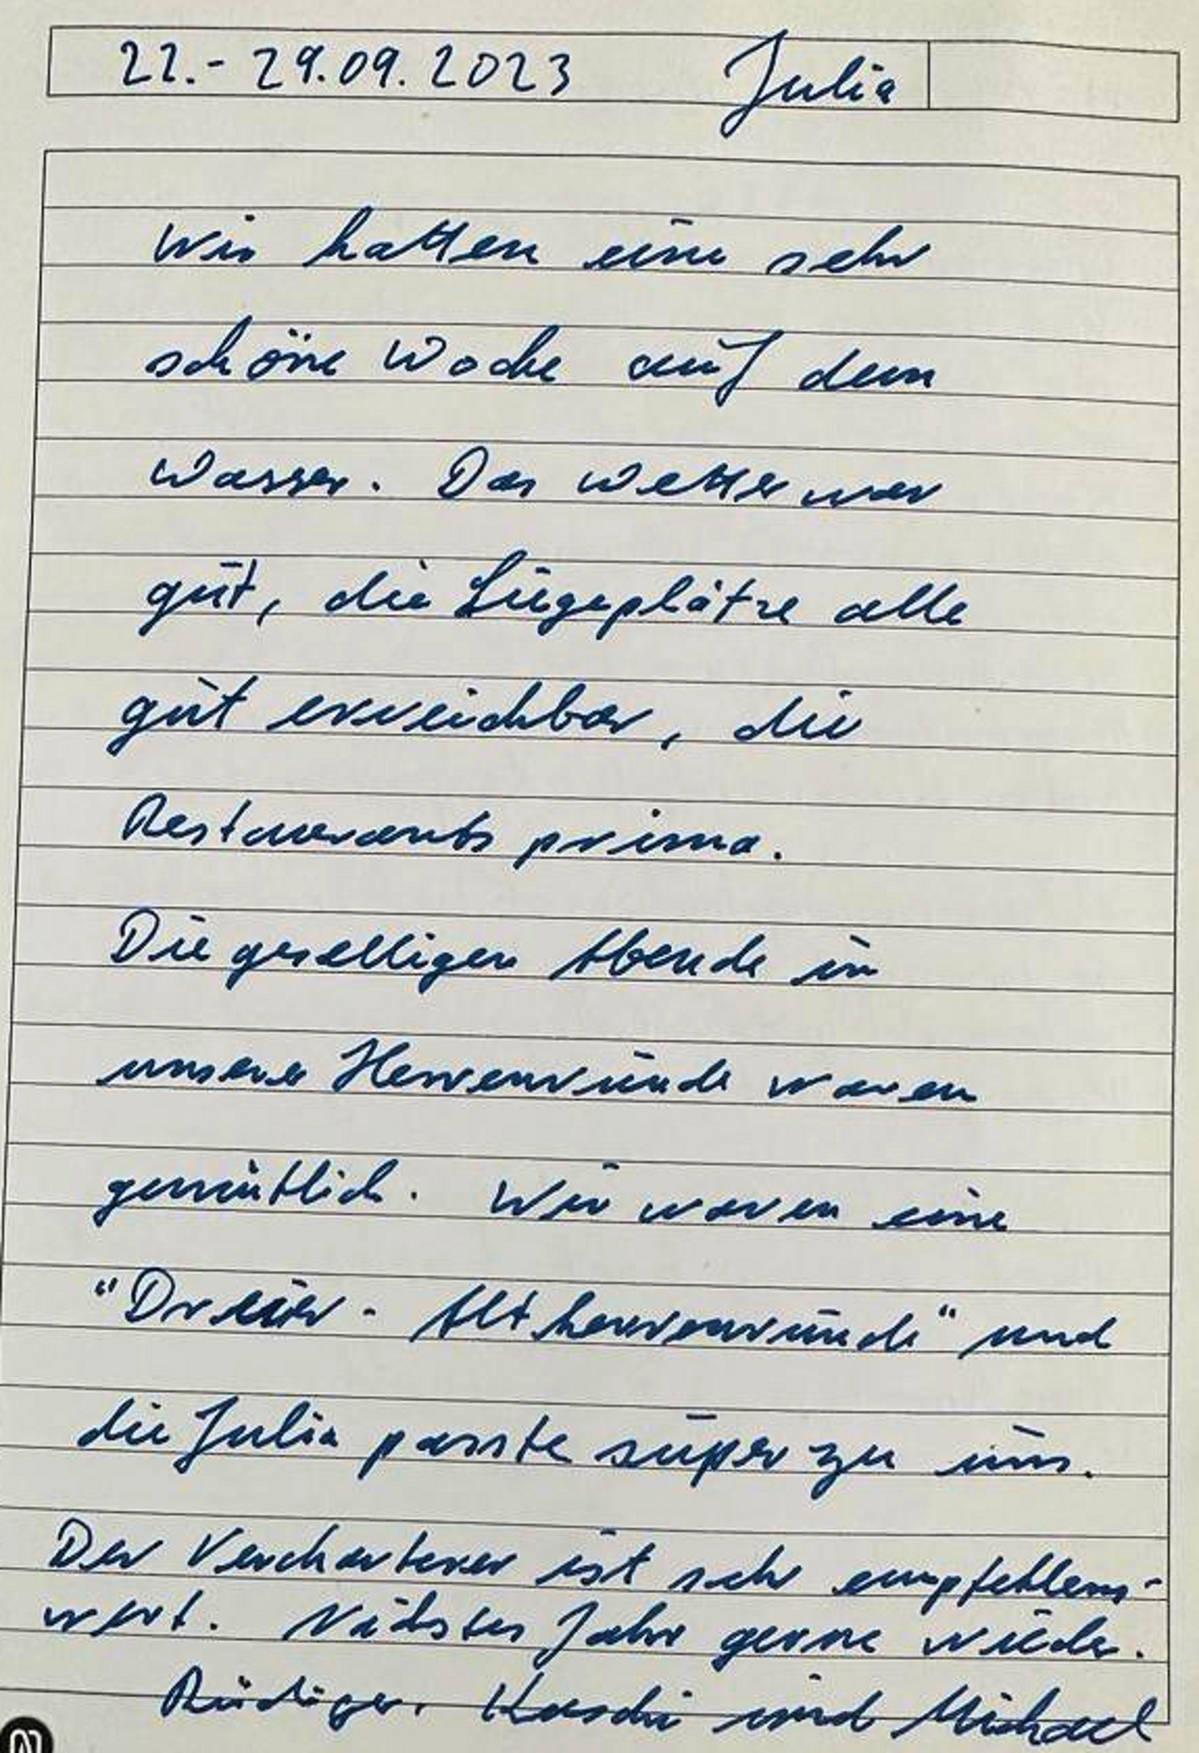 22.- 29.09.2023 Julia
Wir hatten eine sehr
schöne Woche auf dem
Wasser. Das Wetter war
gut, die Liegeplätze alle
gut erreichbar, die
Restaurants prima.
Die geselligen Abende in
unserer Herrenrunde waren
gemütlich. Wir waren eine
"Dreier - Altherrenrunde" und
die Julia passte super zu uns.
Der Vercharterer ist sehr empfehlens-
wert. Nächstes Jahr gerne wieder.
Rüdiger, und Michael